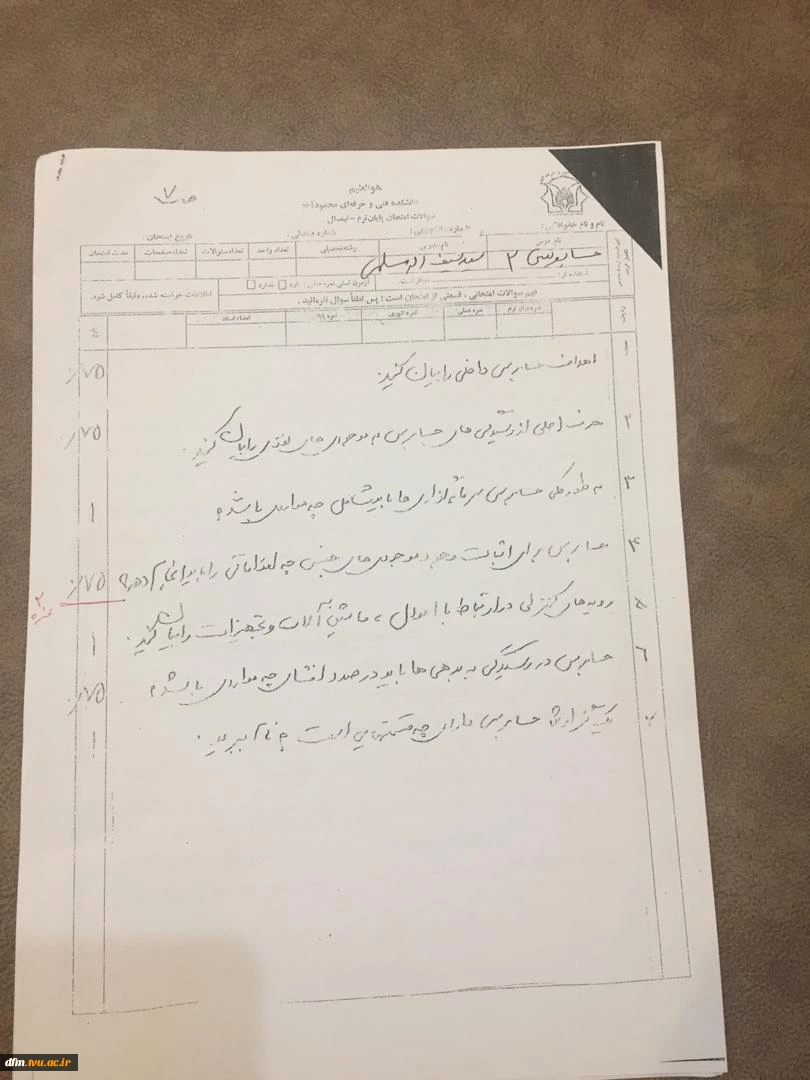 هوالعلیم
دانشکده فنی و حرفه‌ای محمودآباد
سوالات امتحان پایان‌ترم - نیمسال
ص ۷
نام و نام خانوادگی : شماره دانشجویی : شماره صندلی : تاریخ امتحان :
نام درس نام مدرس رشته تحصیلی تعداد واحد تعداد سئوالات تعداد صفحات مدت امتحان
حسابرسی ۲
استفاده از : مجاز است. آزمون تستی نمره منفی : دارد ندارد
فهم سوالات امتحانی، قسمتی از امتحان است؛ پس لطفاً سوال نفرمائید. اطلاعات خواسته شده، دقیقاً کامل شود.
ردیف نمره میان ترم نمره عملی نمره تئوری نمره پایانی امضاء استاد
اهداف حسابرسی داخلی را بیان کنید. ۰/۷۵
۲ هدف اصلی از رسیدگی های حسابرس به موجودی های نقدی را بیان کنید. ۰/۷۵
۳ به طور کلی حسابرسی سرمایه گذاری ها باید شامل چه مواردی باشد؟ ۱
۴ حسابرس برای اثبات وجود موجودی های جنسی چه اقداماتی را باید انجام دهد؟ ۰/۷۵
۲ نمره
۵ رویه های کنترلی در ارتباط با اموال، ماشین آلات و تجهیزات را بیان کنید. ۱
۶ حسابرس در رسیدگی به بدهی ها باید در صدد افشای چه مواردی باشد؟ ۰/۷۵
۷ یک گزارش حسابرسی دارای چه قسمتهایی است؟ نام ببرید. ۱
dfm.tvu.ac.ir